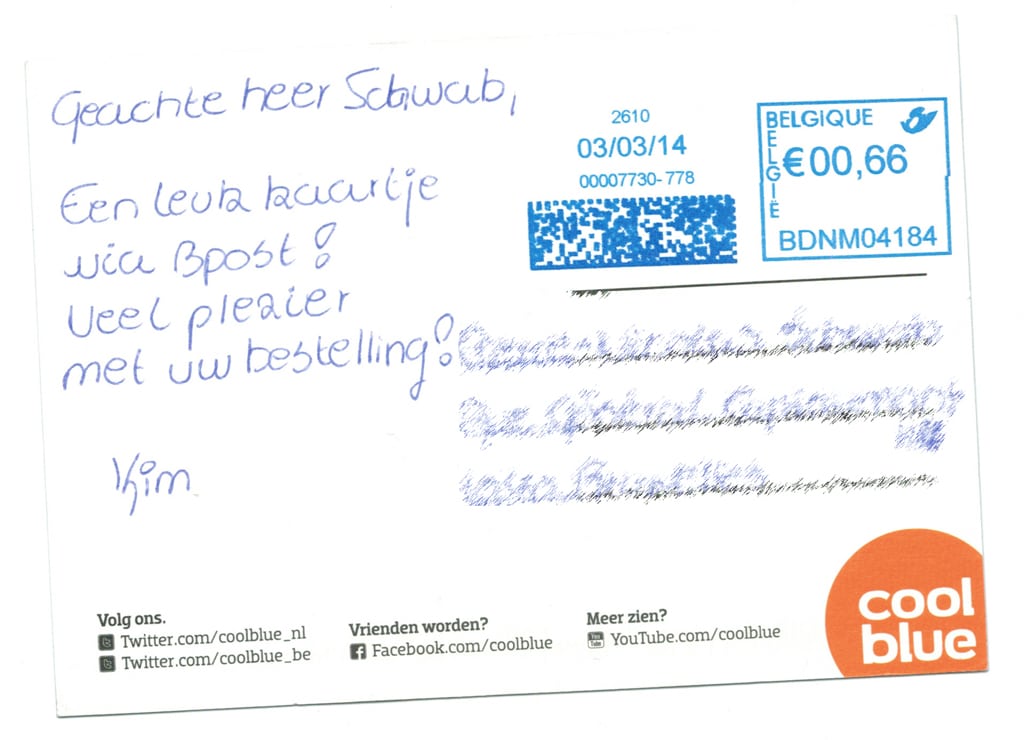 Geachte heer Schwab,
Een leuk kaartje
via Bpost!
Veel plezier
met uw bestelling!
Kim
2610
03/03/14
00007730-778
BELGIQUE
BELGIË
€00,66
BDNM04184
Volg ons.
Twitter.com/coolblue_nl
Twitter.com/coolblue_be
Vrienden worden?
Facebook.com/coolblue
Meer zien?
YouTube.com/coolblue
cool
blue